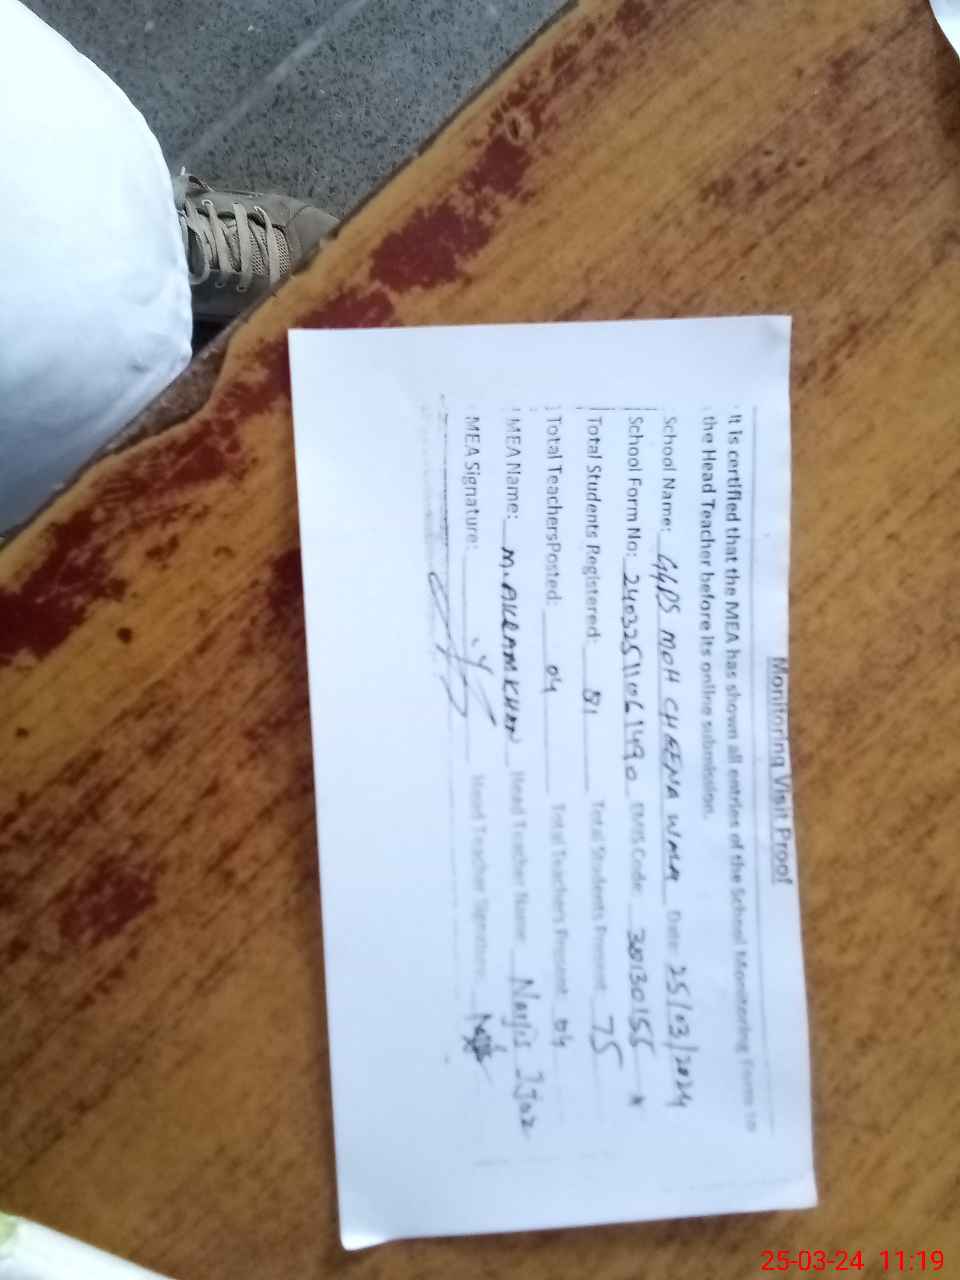 Monitoring Visit Proof
It is certified that the MEA has shown all entries of the School Monitoring Form to
the Head Teacher before its online submission.
School Name: GGPS MOH CHEENA WMA Date: 25/03/2024
School Form No: 24032511061490 EMIS Code: 38130155
Total Students Registered: 81 Total Students Present 75
Total TeachersPosted: 04 Total Teachers Present 04
MEA Name: M. AKRAM KHAN Head Teacher Name: Narjis Ijaz
MEA Signature: Head Teacher Signature:
25-03-24 11:19